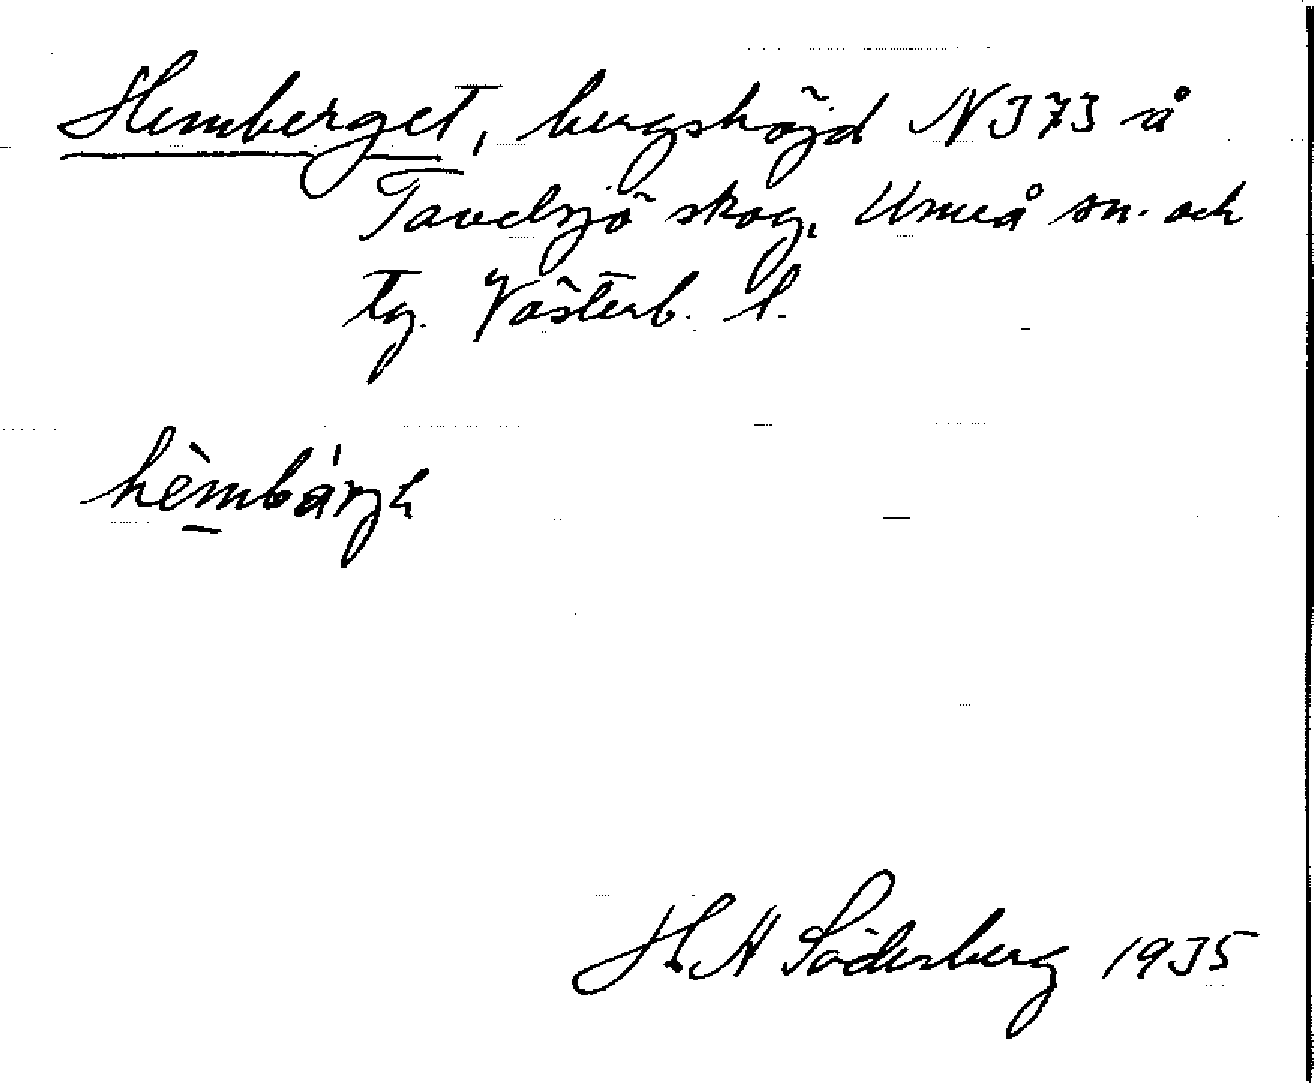 Hemberget, bergshöjd N 373 å
Tavelsjö skog, Umeå sn. och
tg. Västerb. l.
hèmbárjh
H. A Söderberg 1935